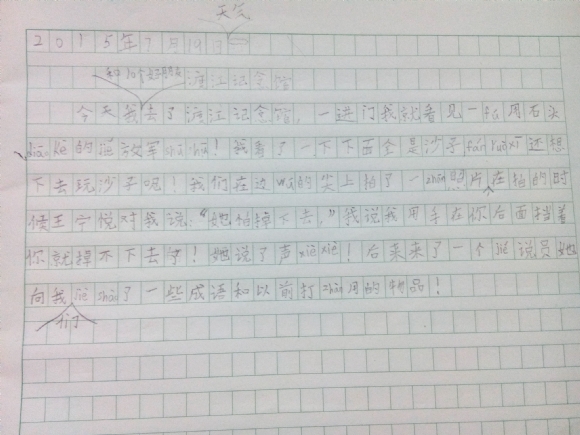 天气
2015年7月19日
渡江记念馆
今天我去了渡江记念馆，一进门我就看见一fú用石头
diāo kè的jiě放军shì bīng！我看了一下下面全是沙子 还想
下去玩沙子呢！我们在边 的尖上拍了一zhāng照片在拍的时
候王宁悦对我说：“她怕掉下去，”我说我用手在你后面挡着
你就掉不下去了！她说了声xiè xiè！后来来了一个 说员她
向我们 了一些成语和以前打zhàng用的物品！